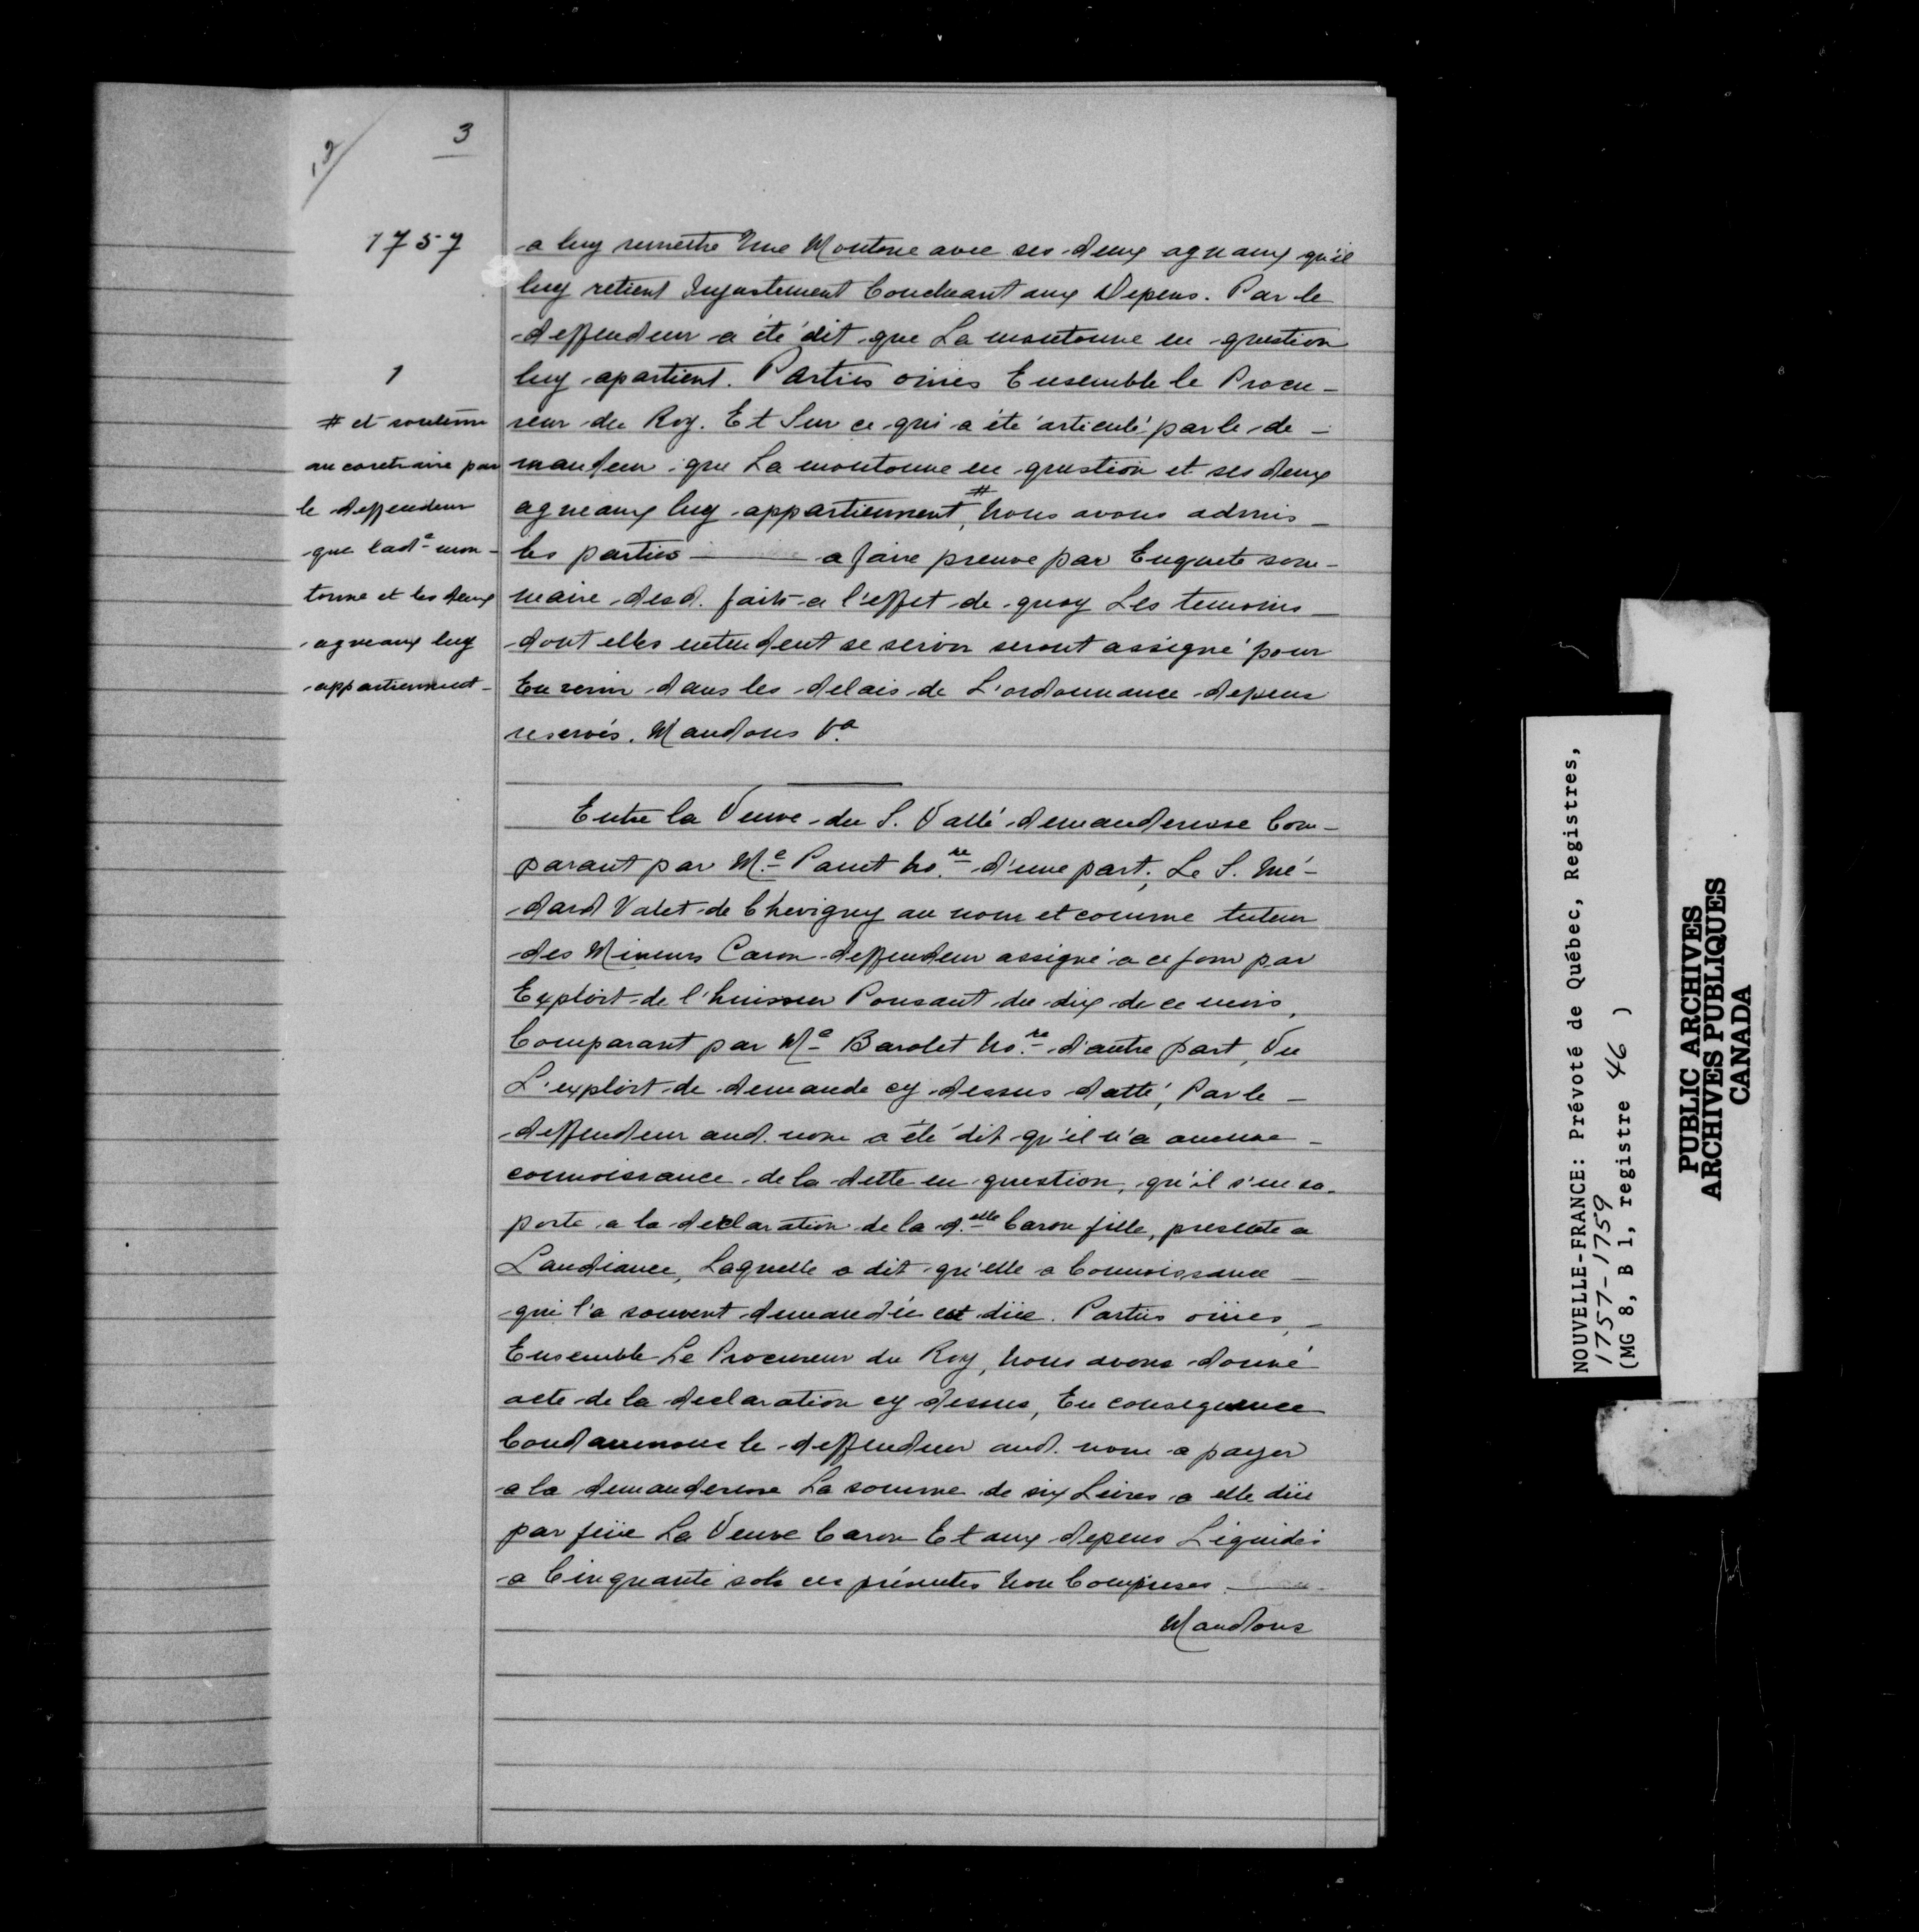 3
1757
a luy remettre Une Moutone avec ses deux agnaux qu'il
luy retient Injustement Concluant aux Depens. Par le
deffendeur a été dit que La moutonne en question
1
luy apartient. Parties oüies Ensemble le Procu-
reur du Roy. Et Sur ce qui a été articulé par le de-
mandeur que La moutonne en question et ses deux
agneaux luy appartiennent,# Nous avons admis
les parties — a faire preuve par Enquete som-
maire desd. faits a l'effet de quoy Les temoins
dont elles entendent se servir seront assigné pour
En venir dans les delais de L'ordonnance depens
reservés. Mandons &a
# et soutenu
au contraire par
le deffendeur
que lade mou-
tonne et les deux
agneaux luy
appartiennent-
Entre la Veuve du S. Vallé demanderesse Com-
parant par Me Panet No.re d'une part; Le S. Mé-
dard Valet de Chevigny au nom et comme tuteur
des Mineurs Caron deffendeur assigné a ce jour par
Exploit de l'huissier Ponsant du dix de ce mois,
Comparant par Me Barolet No.re d'autre part, Vu
L'exploit de demande cy dessus datté, Par le
deffendeur aud. nom a été dit qu'il n'a aucune
connoissance de la dette en question, qu'il s'en ra-
porte a la declaration de la d.elle Caron fille, presente a
Laudiance, Laquelle a dit qu'elle a Connoissance
qui l'a souvent demandée est düe. Parties oüies,
Ensemble Le Procureur du Roy, Nous avons donné
acte de la declaration cy dessus, En consequence
Condamnons le deffendeur aud. nom a payer
a la demanderesse La somme de six Livres a elle düe
par feüe La Veuve Caron Et aux depens Liquidés
a Cinquante sols ces présentes Non Comprises.
Mandons
NOUVELLE-FRANCE: Prévoté de Québec, Registres,
1757-1759
(MG 8, B 1, registre 46 )
PUBLIC ARCHIVES
ARCHIVES PUBLIQUES
CANADA